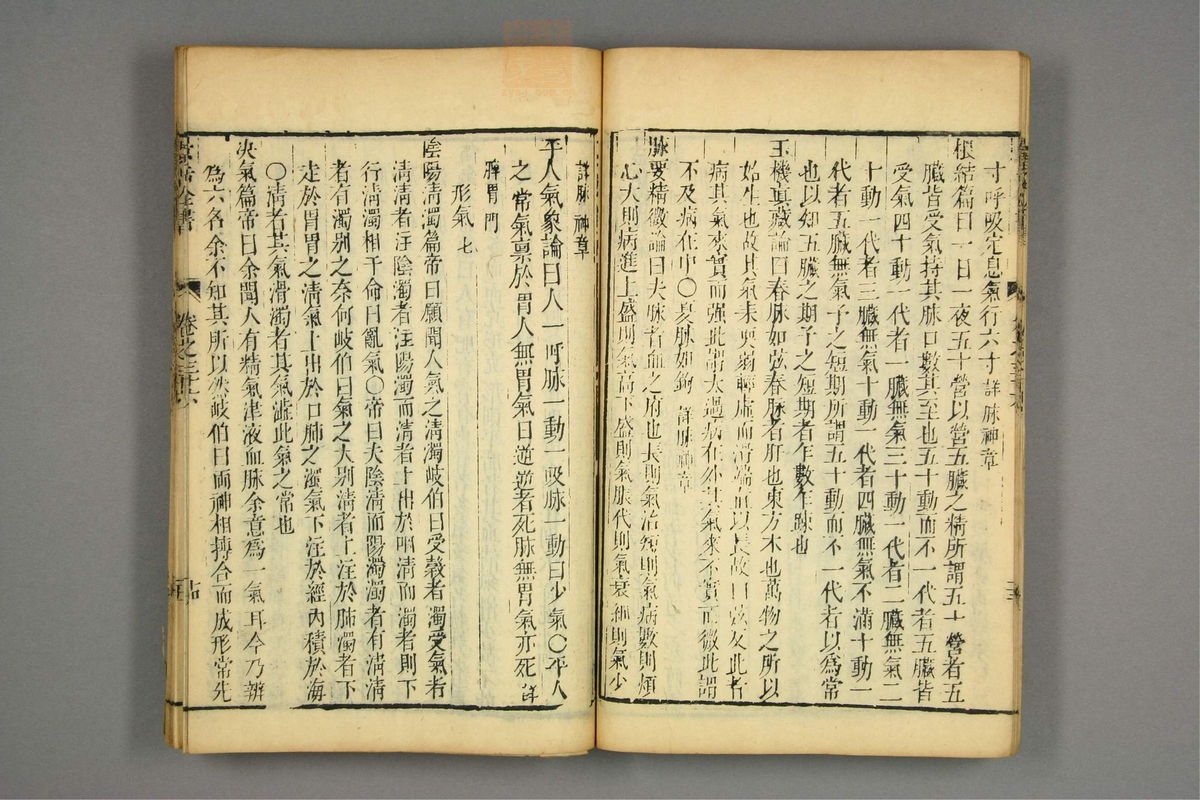 寸呼吸定息氣行六寸詳脉神章
根結篇曰一日一夜五十營以營五臟之精所謂五十營者五
臟皆受氣持其脉口數其至也五十動而不一代者五臟皆
受氣四十動一代者一臟無氣三十動一代者二臟無氣二
十動一代者三臟無氣十動一代者四臟無氣不滿十動一
代者五臟無氣予之短期所謂五十動而不一代者以爲常
也以知五臟之期予之短期者乍數乍踈也
玉機眞藏論曰春脉如弦春脉者肝也東方木也萬物之所以
始生也故其氣來耎弱輕虛而滑端直以長故曰弦反此者
病其氣來實而强此謂太過病在外其氣來不實而微此謂
不及病在中〇夏脉如鉤詳脉神章
脉要精微論曰夫脉者血之府也長則氣治短則氣病數則煩
心大則病進上盛則氣高下盛則氣脹代則氣衰細則氣少
詳脉神章
平人氣象論曰人一呼脉一動一吸脉一動曰少氣〇平人
之常氣禀於胃人無胃氣曰逆逆者死脉無胃氣亦死詳
脾胃門
形氣七
陰陽淸濁篇帝曰願聞人氣之淸濁岐伯曰受穀者濁受氣者
淸淸者注陰濁者注陽濁而淸者上出於咽淸而濁者則下
行淸濁相干命曰亂氣〇帝曰夫陰淸而陽濁濁者有淸淸
者有濁别之奈何岐伯曰氣之大别淸者上注於肺濁者下
走於胃胃之淸氣上出於口肺之濁氣下注於經內積於海
〇淸者其氣滑濁者其氣澁此氣之常也
决氣篇帝曰余聞人有精氣津液血脉余意爲一氣耳今乃辨
爲六名余不知其所以然岐伯曰兩神相搏合而成形常先
景岳全書
卷之三十六